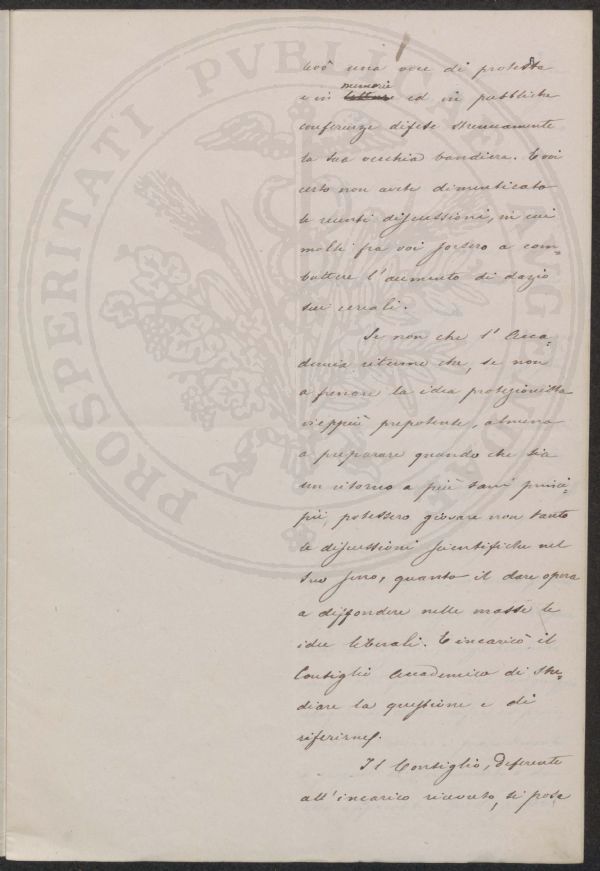 PROSPERITATI PVBLICAE AVGENDAE
levò una voce di protesta
memorie
e in letture ed in pubbliche
conferenze difese strenuamente
la sua vecchia bandiera. E voi
certo non avete dimenticato
le recenti discussioni, in cui
molti fra voi sorsero a com-
battere l'aumento di dazio
sui cereali.
Se non che l'Acca-
demia ritenne che, se non
a frenare la idea protezionista
vieppiù prepotente, almeno
a preparare quando che sia
un ritorno a più sani princi-
pii, potessero giovare non tanto
le discussioni scientifiche nel
suo seno, quanto il dare opera
a diffondere nelle masse le
idee liberali. E incaricò il
Consiglio Accademico di stu-
diare la questione e di
riferirne.
Il Consiglio, deferente
all'incarico ricevuto, si pose